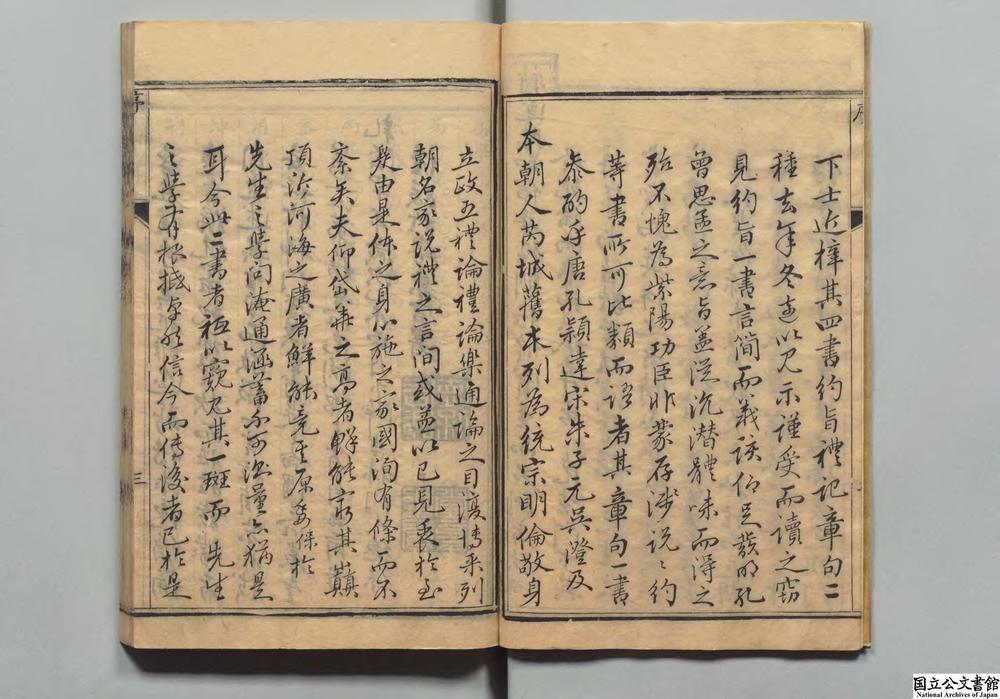 下士近梓其四書約旨禮記章句二
種去年冬走以見示謹受而讀之竊
見約旨一書言簡而義該仰足發明孔
曾思孟之意旨蓋從沉潜體味而得之
殆不愧為紫陽功臣非蒙存淺說說約
等書所可比類而語者其章句一書
叅酌乎唐孔穎達宋朱子元吳澄及
本朝人芮城舊本列為統宗明倫敬身
立政五禮論禮論樂通論之目復博采列
朝名家說禮之言间或並以已見衷於至
是由是体之身心施之家國洵有條而不
紊矣夫仰岱華之高者鮮能窮其巔
頂泝河海之廣者鮮能竟其原委係於
先生之學问淹通涵蓄不可測量亦猶是
耳今此二書者祗以窺见其一斑而 先生
之學有根柢卓然信今而傳後者已於是
序
三
国立公文書館
National Archives of Japan